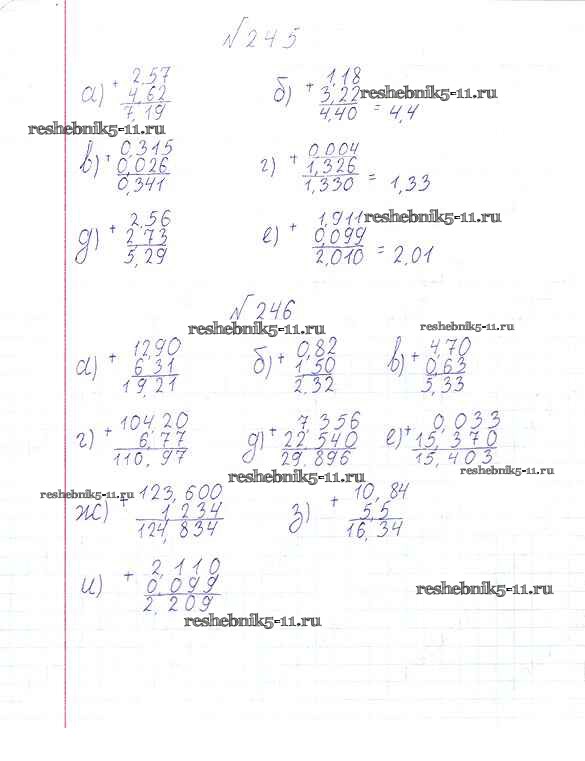 №245
а) + 2,57 б) + 1,18
4,62 3,22 reshebnik5-11.ru
7,19 4,40 = 4,4
reshebnik5-11.ru
в) + 0,315 г) + 0,004
0,026 1,326
0,341 1,330 = 1,33
д) + 2,56 е) + 1,911 reshebnik5-11.ru
2,73 0,099
5,29 2,010 = 2,01
№246
reshebnik5-11.ru reshebnik5-11.ru
а) + 12,90 б) + 0,82 в) + 4,70
6 31 1,50 0,63
19,21 2,32 5,33
г) + 104,20 д) + 7,356 е) + 0,033
6,77 22,540 15,370
110,97 29,896 15,403
reshebnik5-11.ru reshebnik5-11.ru
reshebnik5-11.ru
ж) + 123,600 з) + 10,84
1 234 5,5
124,834 16,34
и) + 2,110
0,099 reshebnik5-11.ru
2,209
reshebnik5-11.ru